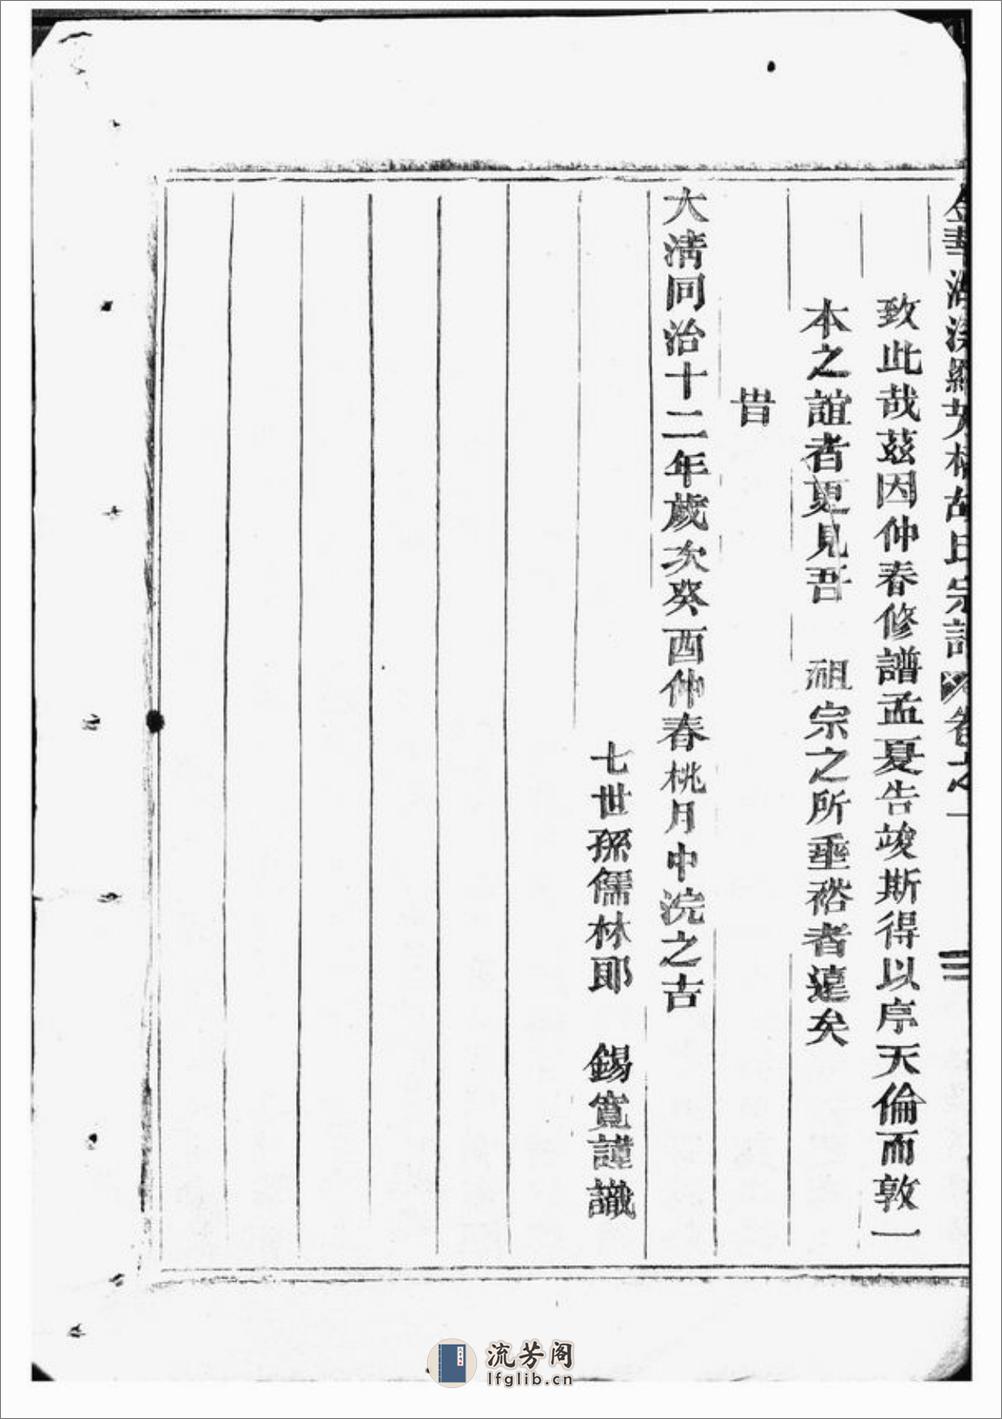 金華湖溪羅大樓胡氏宗譜 卷之一
二
致此哉茲因仲春修譜孟夏告竣斯得以序天倫而敦一
本之誼者更見吾 祖宗之所垂裕者遠矣
旹
大清同治十二年歲次癸酉仲春桃月中浣之吉
七世孫儒林郎 錫寬謹識
流芳阁
lfglib.cn